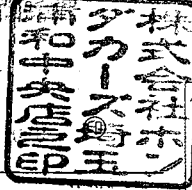 株式会社ホン
ダカーズ埼玉
浦和中央店之印